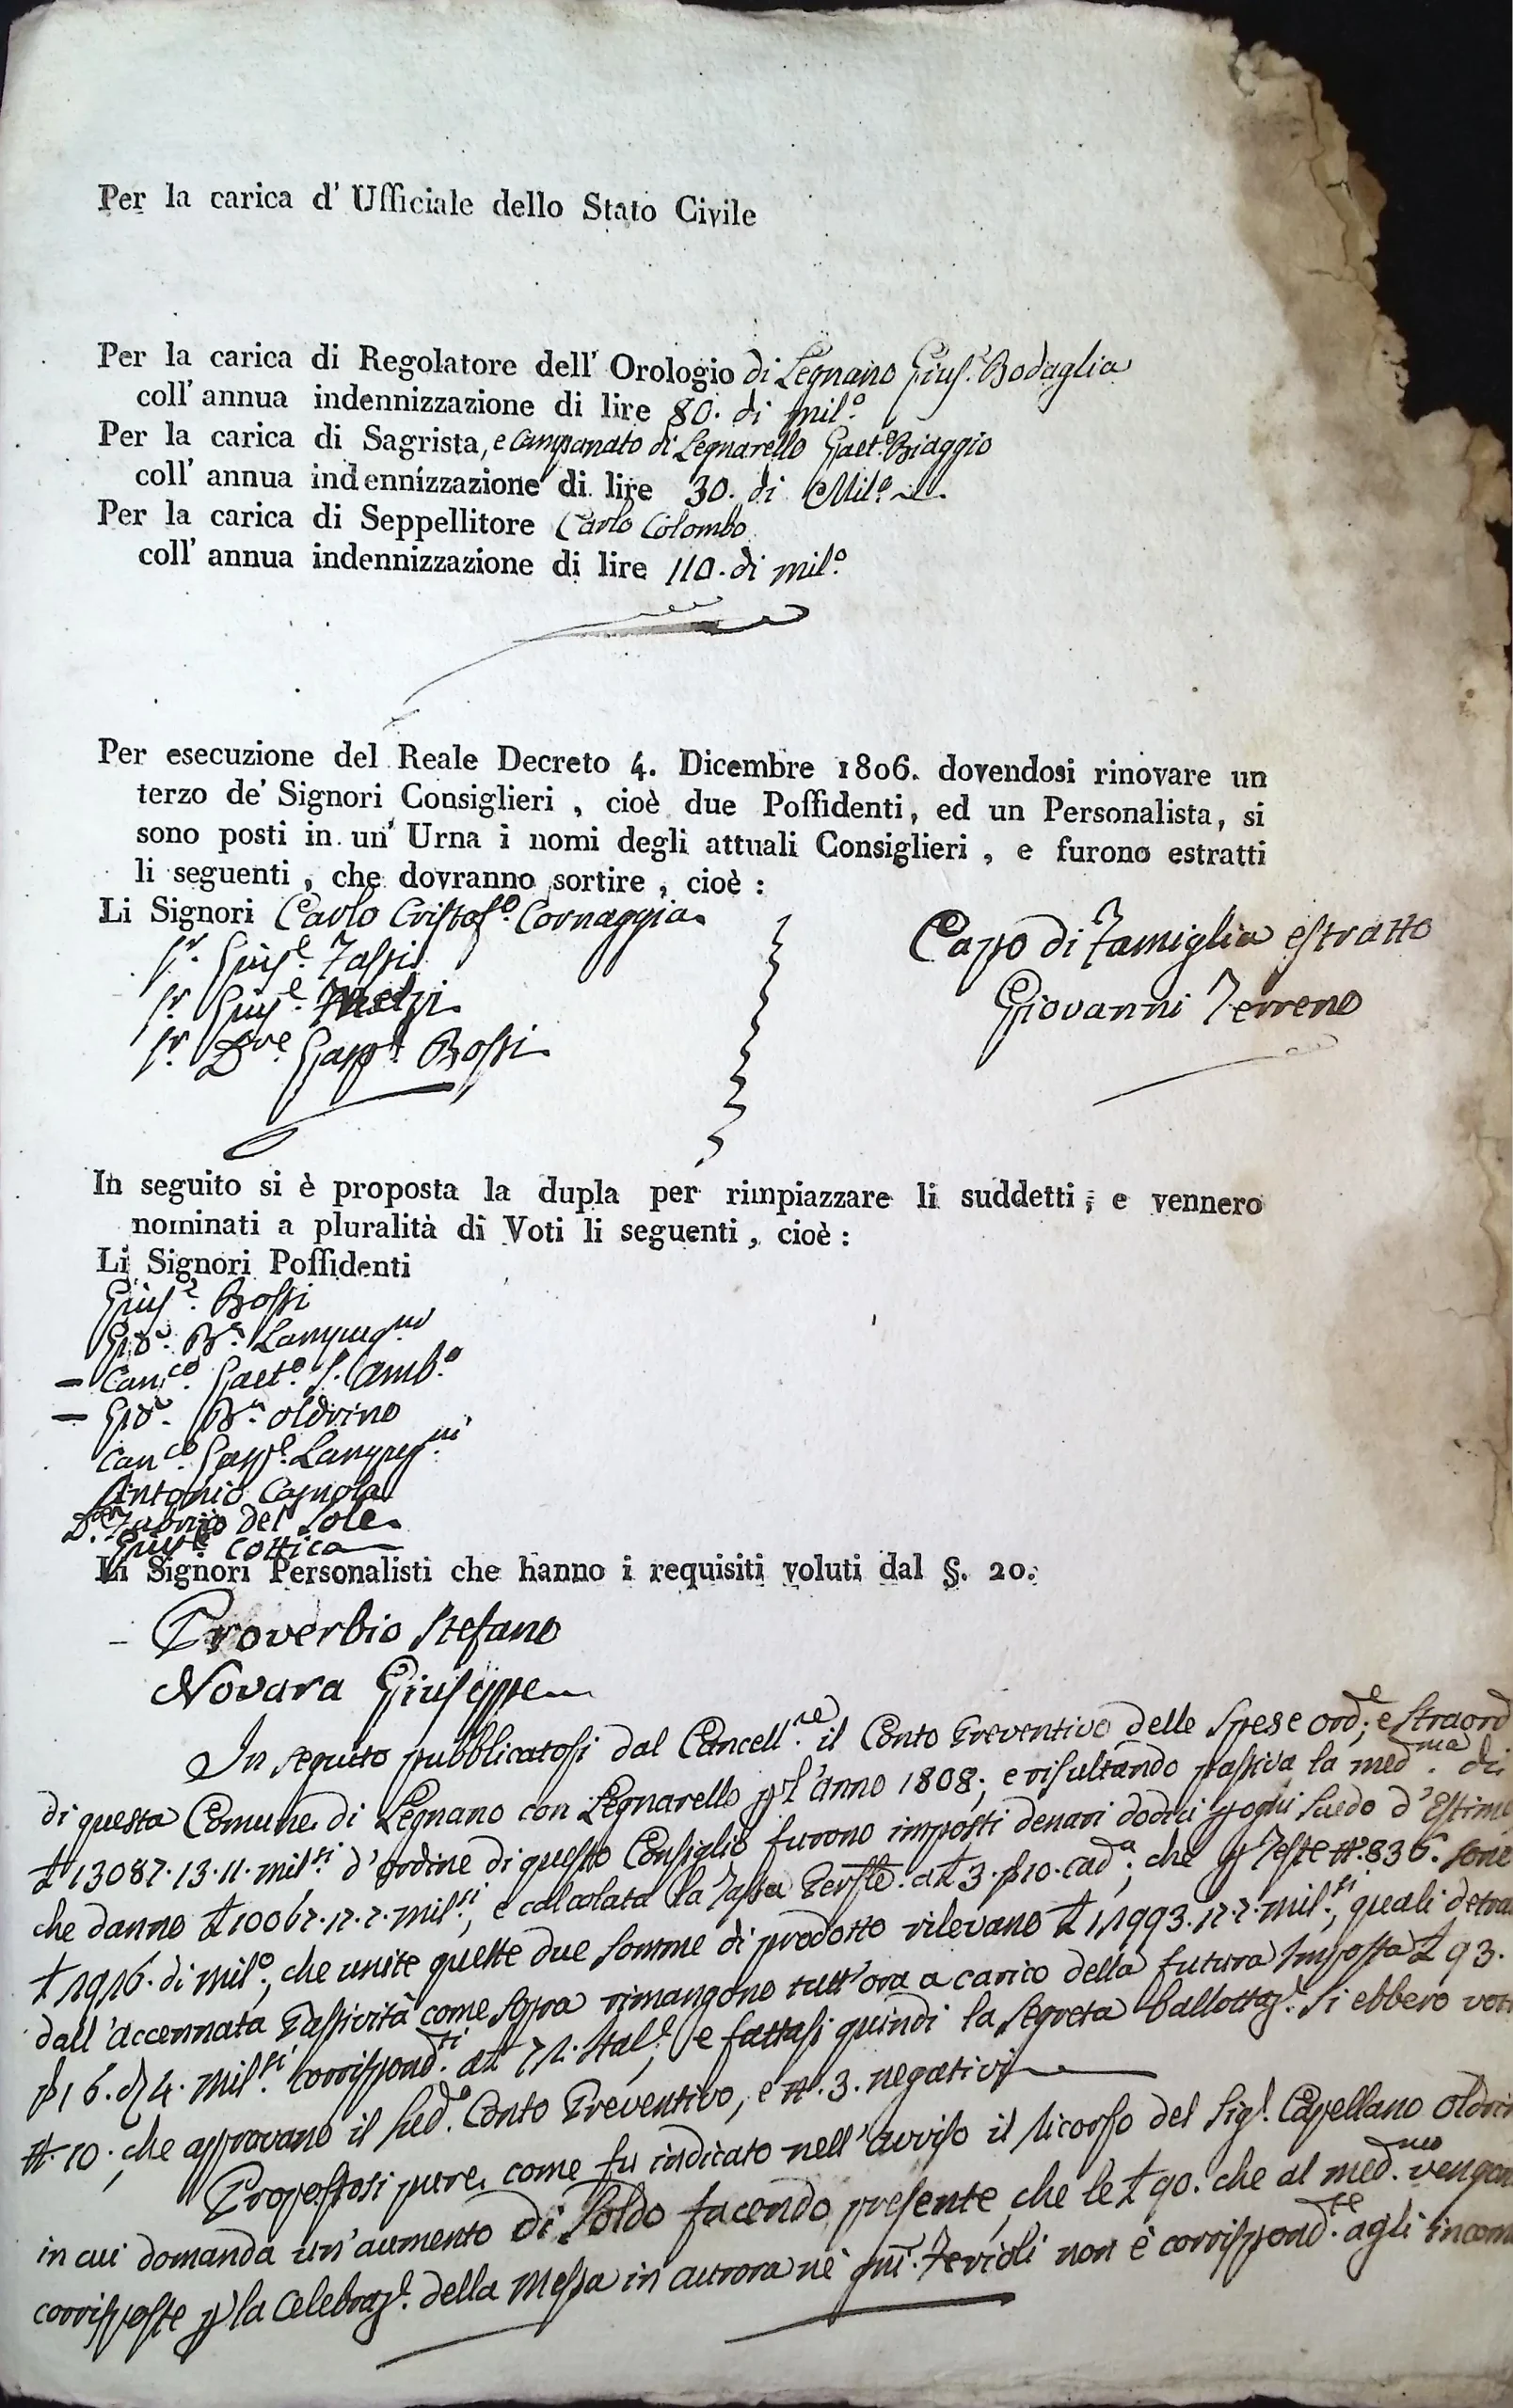 Per la carica d' Ufficiale dello Stato Civile
Per la carica di Regolatore dell' Orologio di Legnano Gius.e Bodaglia
coll' annua indennizzazione di lire 80. di mil.o
Per la carica di Sagrista, e Campanato di Legnarello Gaet.o Biaggio
coll' annua indennizzazione di lire 30. di Mil.o
Per la carica di Seppellitore Carlo Colombo
coll' annua indennizzazione di lire 110. di mil.o
Per esecuzione del Reale Decreto 4. Dicembre 1806. dovendosi rinovare un
terzo de' Signori Consiglieri, cioè due Possidenti, ed un Personalista, si
sono posti in un' Urna i nomi degli attuali Consiglieri, e furono estratti
li seguenti, che dovranno sortire, cioè:
Li Signori Carlo Cristof.o Cornaggia
Sr. Gius.e Tassi
Sr. Gius.e
Sr. D.re Gasp.e Bossi
Capo di Famiglia estratto
Giovanni Terreno
In seguito si è proposta la dupla per rimpiazzare li suddetti; e vennero
nominati a pluralità di Voti li seguenti, cioè:
Li Signori Possidenti
Gius.e Bossi
Gio. B.a Lampug.ni
– Can.co Gaet.o S. Amb.o
– Gio. B.a Oldrino
Can.co Gasp.e Lampug.ni
Antonio Cagnola
D.n Fabrizio del Sole
Gius.e Cottica
Li Signori Personalisti che hanno i requisiti voluti dal §. 20.
– Proverbio Stefano
Novara Giuseppe
In seguito pubblicatosi dal Cancell.re il Conto Preventivo delle Spese ord.e, e Straord
di questa Comune di Legnano con Legnarello p l'anno 1808; e risultando passiva la med.ma di
£ 13087.13.11. mil.si d'ordine di questo Consiglio furono imposti denari dodici p ogni Scudo d'Estimo
che danno £ 10067.17.7. mil.si, e calcolata la Tassa Person.le a £ 3. s 10. cad.a; che p Teste N. 836. sono
£ 1916. di mil.o, che unite queste due Somme di prodotto rilevano £ 11993.17.7. mil.si, quali detra
dall'accennata Passività come sopra rimangono tutt'ora a carico della futura Imposta £ 93.
s 16. d 4. mil.si corrispond.ti a £ 71. Ital.e, e fattasi quindi la Segreta ballottaz.e si ebbero voti
N. 10. che approvano il sud.o Conto Preventivo, e N. 3. negativi
Propostosi pure come fu indicato nell'avviso il Ricorso del Sig.r Capellano Oldrin
in cui domanda un'aumento di Soldo facendo presente, che le £ 90. che al med.mo vengon
corrisposte p la Celebraz.e della Messa in aurora ne' gni. Feriali non è corrispond.te agli incom